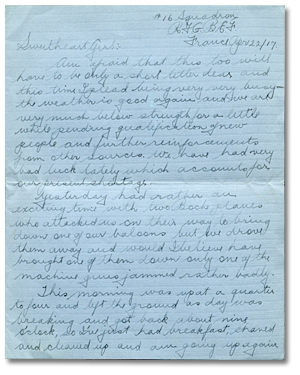 #16 Squadron
R.F.C. B.E.F.
France, Apr 22/17.
Sweetheart Girl:
Am afraid that this too will
have to be only a short letter dear and
this time I plead being very, very busy
the weather is good again and we are
very much below strength for a little
while pending qualification of new
people and further reinforcements
from other sources. We have had very
bad luck lately which accounts for
our present shortage.
Yesterday had rather an
exciting time with two Boch planes
who attacked us on their way to bring
down one of our baloons but we drove
them away and would I believe have
brought one of them down only one of the
machine guns jammed rather badly.
This morning was up at a quarter
to four and left the ground as day was
breaking and got back about nine
o'clock, so I've just had breakfast, shaved
and cleaned up and am going up again